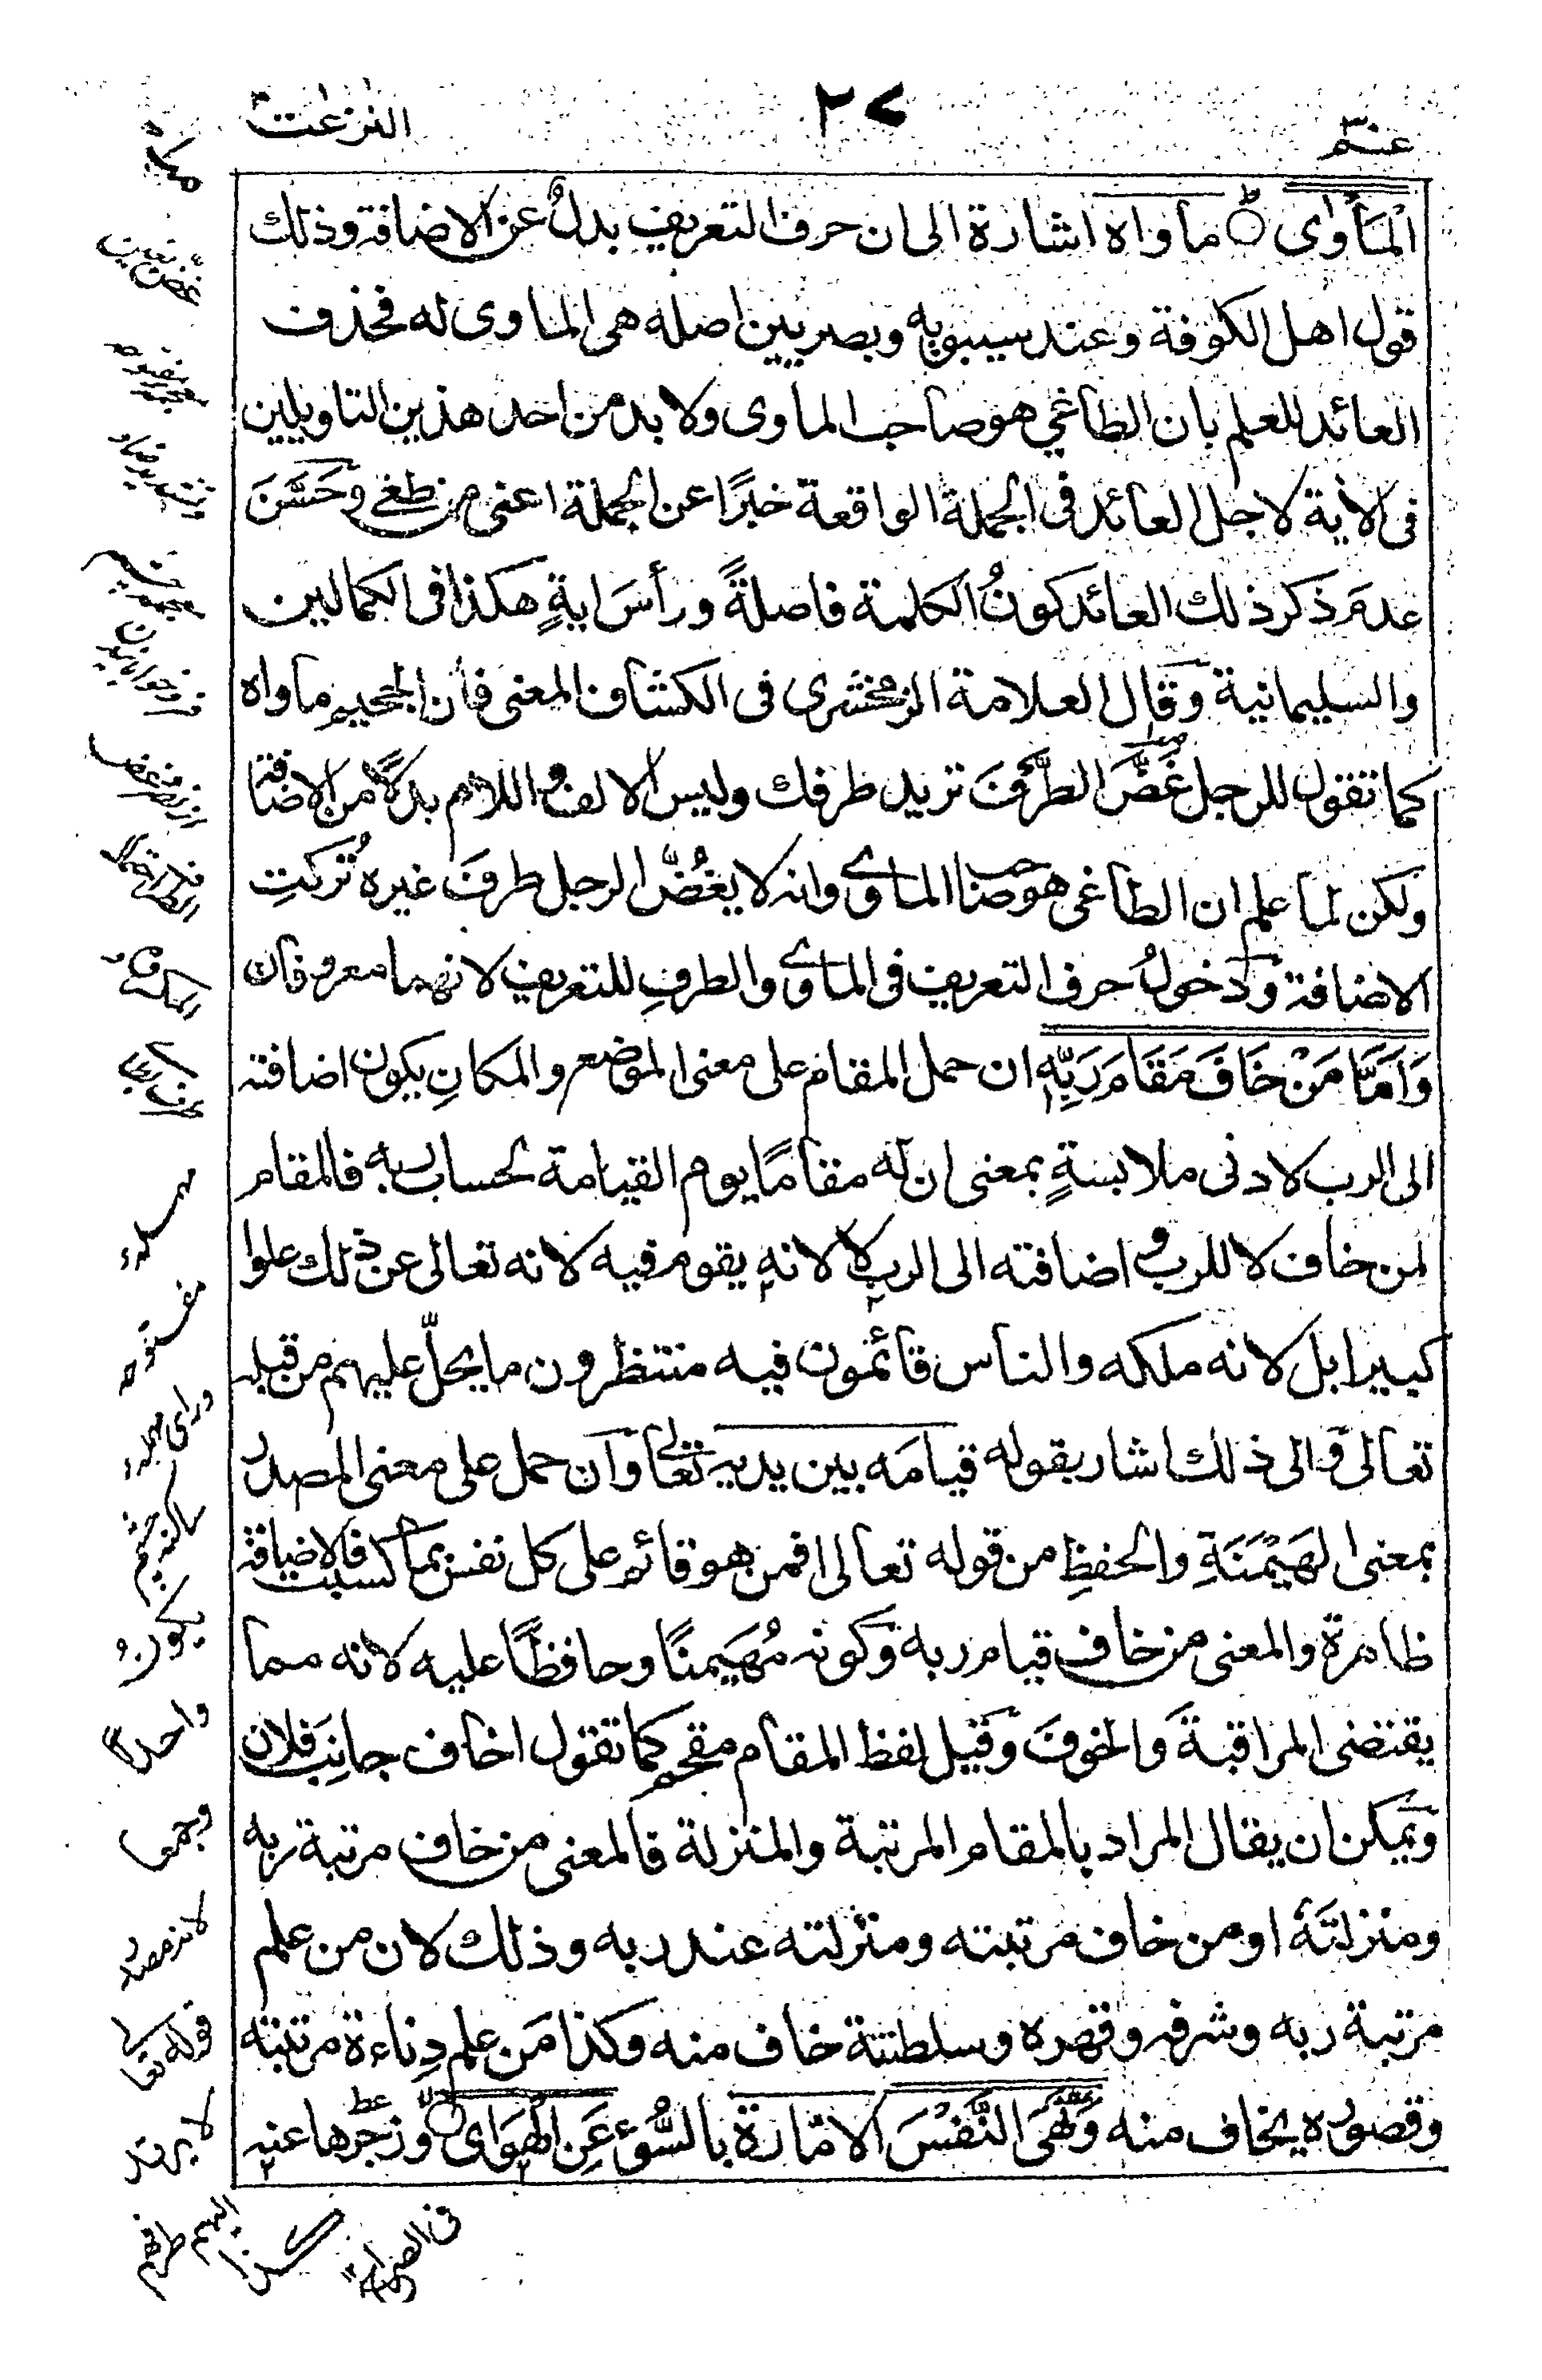 عم ٣٠
٢٧
النزعت
الْمَأْوٰى ط ماواه اشارة الى ان حرف التعريف بدلٌ عن الاضافة وذلك
قول اهل الكوفة وعند سيبويه وبصريين اصله هى الماوى له فحذف
العائد للعلم بان الطاغي هو صاحب الماوى ولا بد من احد هذين التاويلين
فى الأية لاجل العائد فى الجملة الواقعة خبرًا عن الجملة اعنى من طغى وحَسَّنَ
عدمَ ذكر ذلك العائد كونُ الكلمة فاصلةً ورأسَ ايةٍ هكذا فى الكمالين
والسليمانية وقال العلامة الزمخشرى فى الكشاف المعنى فان الجحيم ماواه
كما تقول للرجل غُضَّ الطرْفَ تريد طرفك وليس الالف واللام بدلاً من الاضافة
ولكن لما علم ان الطاغى هو صاحب الماوى وانه لا يغُضُّ الرجل طرفَ غيره تُركتِ
الاضافة ودخولُ حرف التعريف فى الماوى والطرفِ للتعريف لانهما معروفان
وَاَمَّا مَنْ خَافَ مَقَامَ رَبِّهٖ ان حمل المقام على معنى الموضع والمكانِ يكون اضافته
الى الرب لادنى ملابسةٍ بمعنى ان له مقامًا يوم القيامة لحساب ربه فالمقام
لمن خاف لا للرب واضافته الى الرب لا لانه يقوم فيه لانه تعالى عن ذلك علوا
كبيرا بل لانه ملكه والناس قائمون فيه منتظرون ما يحلّ عليهم من قبله
تعالى والى ذلك اشار بقوله قيامَه بين يديه تعالى وان حمل على معنى المصدر
بمعنى الهَيْمَنَةِ والحفظِ من قوله تعالى افمن هو قائم على كل نفس بما كسبت فالاضافة
ظاهرة والمعنى من خاف قيام ربه وكونه مُهَيمنًا وحافظًا عليه لانه مما
يقتضى المراقبةَ والخوفَ وقيل لفظ المقام مقحم كما تقول اخاف جانِبَ فلان
ويمكن ان يقال المراد بالمقام المرتبة والمنزلة فالمعنى من خاف مرتبة ربه
ومنزلتَهُ او من خاف مرتبته ومنزلته عند ربه وذلك لان من علم
مرتبة ربه وشرفه وقهره وسلطنته خاف منه وكذا مَن علم دِناءة مرتبته
وقصوره يخاف منه وَنَهَى النَّفْسَ الامّارة بالسُّوْءِ عَنِ الْهَوٰاى وزجرها عنه
مفتوحه
وراى مهمله
يكون
واحدًا
وجمعا
لانه مصدر
قوله تعالى
لا يرتد
اليهم طرفهم
كذا
فى الصراح ١٢